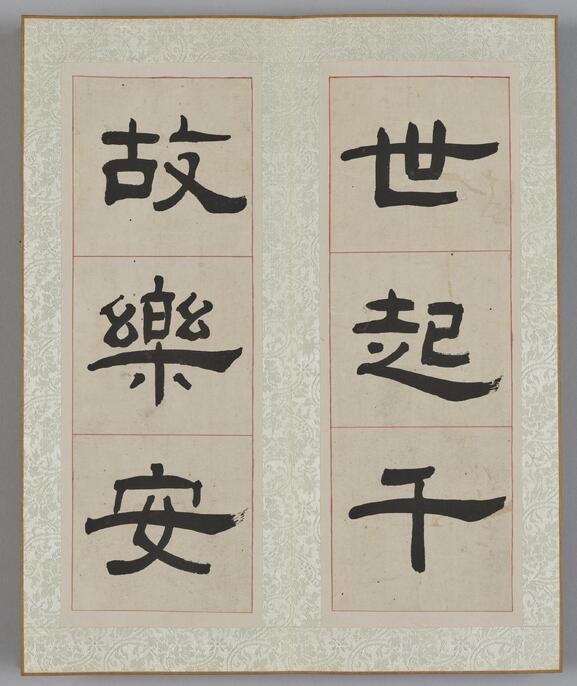 世起千
故樂安